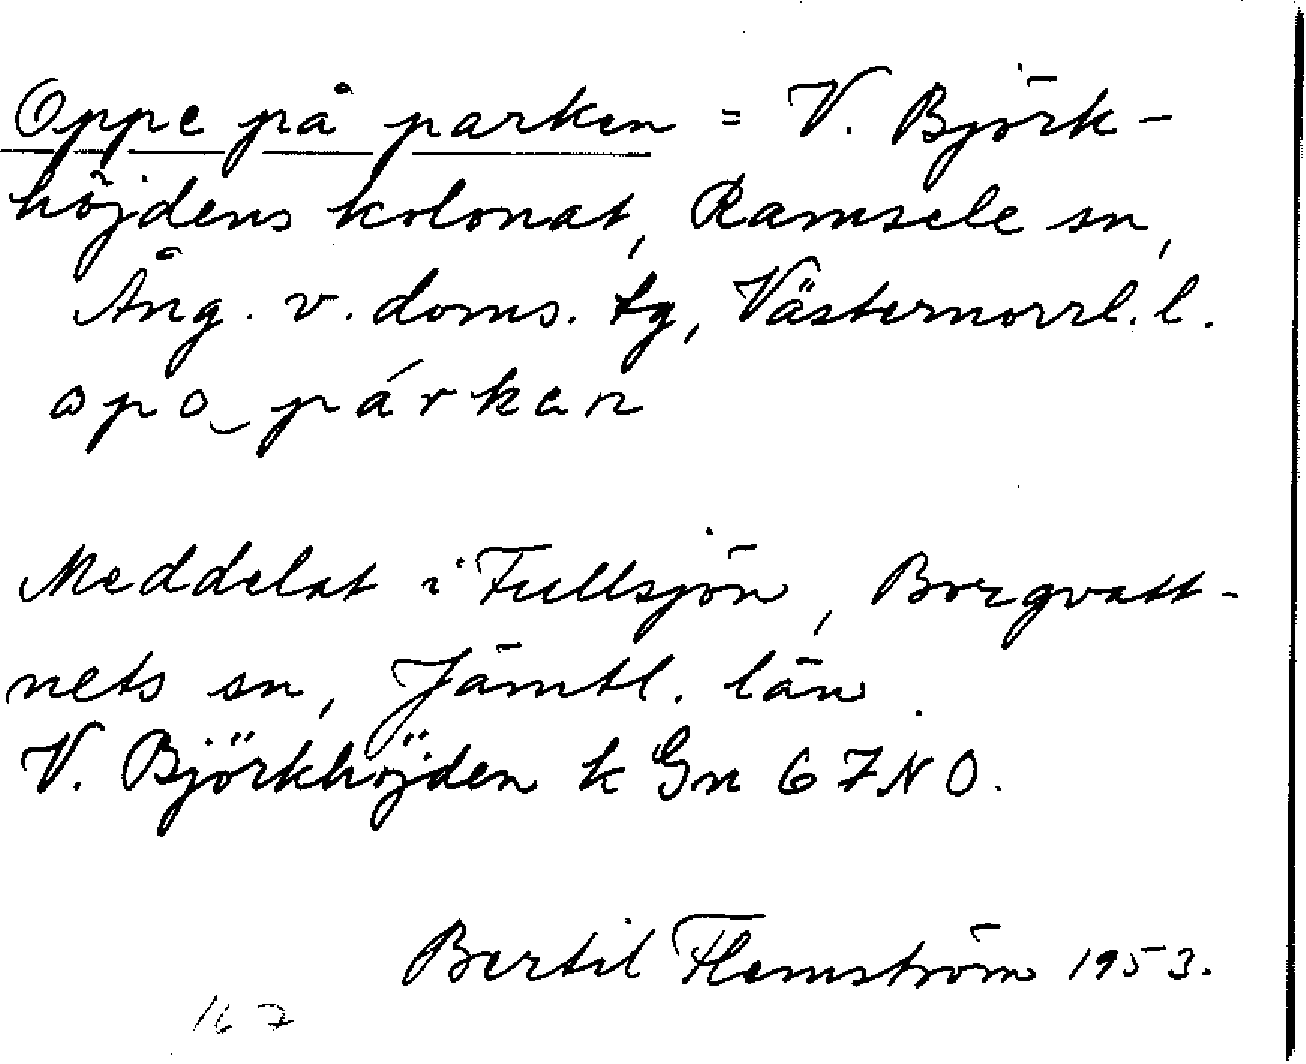 Oppe på parken = V. Björk-
höjdens kolonat, Ramsele sn,
Ång. v. doms. tg, Västernorrl. l.
opo‿párkan
Meddelat i Fullsjön, Borgvatt-
nets sn, Jämtl. län.
V. Björkhöjden k Gn 67NO.
Bertil Flemström 1953.
167